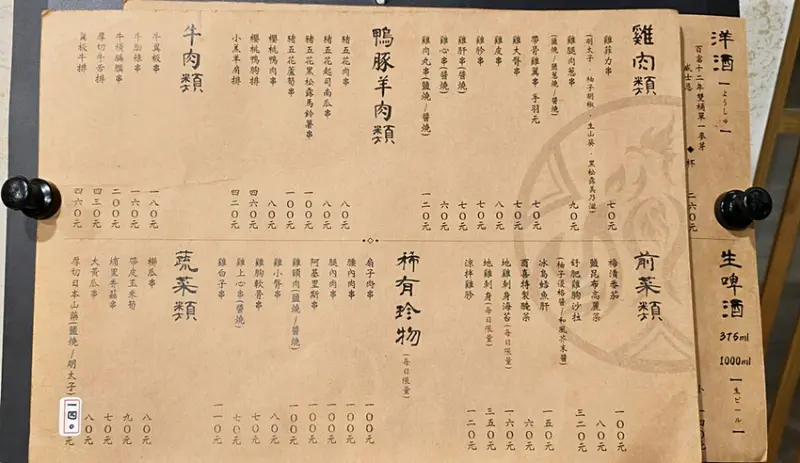 洋酒
【ようしゅ】
百富十二年雙桶單一麥芽
威士忌
◆ 杯 二六〇元
生啤酒
375ml
1000ml
【生ビール】
雞肉類
雞菲力串 七〇元
(明太子．柚子胡椒．生山葵．黑松露美乃滋)
雞腿肉蔥串 九〇元
(鹽燒/醬燒/鹽蔥燒)
帶骨雞翼串 手羽元 七〇元
雞大臀串 七〇元
雞皮串 八〇元
雞胗串 七〇元
雞肝串(醬燒) 七〇元
雞心串(醬燒) 六〇元
雞肉丸串(鹽燒/醬燒) 一二〇元
鴨豚羊肉類
豬五花肉串 八〇元
豬五花起司南瓜串 八〇元
豬五花黑松露馬鈴薯串 一〇〇元
豬五花蘆筍串 一〇〇元
櫻桃鴨肉串 八〇元
櫻桃鴨胸排 四六〇元
小羔羊肩排 四二〇元
牛肉類
牛翼板串 一八〇元
牛肋條串 一六〇元
牛橫膈膜串 二〇〇元
厚切牛舌排 四三〇元
翼板牛排 四六〇元
前菜類
梅漬番茄 一〇〇元
鹽昆布高麗菜 八〇元
舒肥雞胸沙拉 三二〇元
(柚子優格醬/和風芥末醬)
冰島鱈魚肝 一五〇元
酉喜特製醃菜 六〇元
地雞刺身海苔(每日限量) 一六〇元
地雞刺身(每日限量) 三五〇元
涼拌雞胗 一二〇元
稀有珍物(每日限量)
扇子肉串 一〇〇元
膝內肉串 一〇〇元
腿內肉串 一〇〇元
阿基里斯串 一〇〇元
雞頸肉(鹽燒/醬燒) 一〇〇元
雞小臀串 八〇元
雞胸軟骨串 七〇元
雞上心串(醬燒) 七〇元
雞白子串 一一〇元
蔬菜類
櫛瓜串 八〇元
帶皮玉米筍 九〇元
埔里香菇串 七〇元
大黃瓜串 八〇元
厚切日本山藥(鹽燒/明太子) 一四〇元